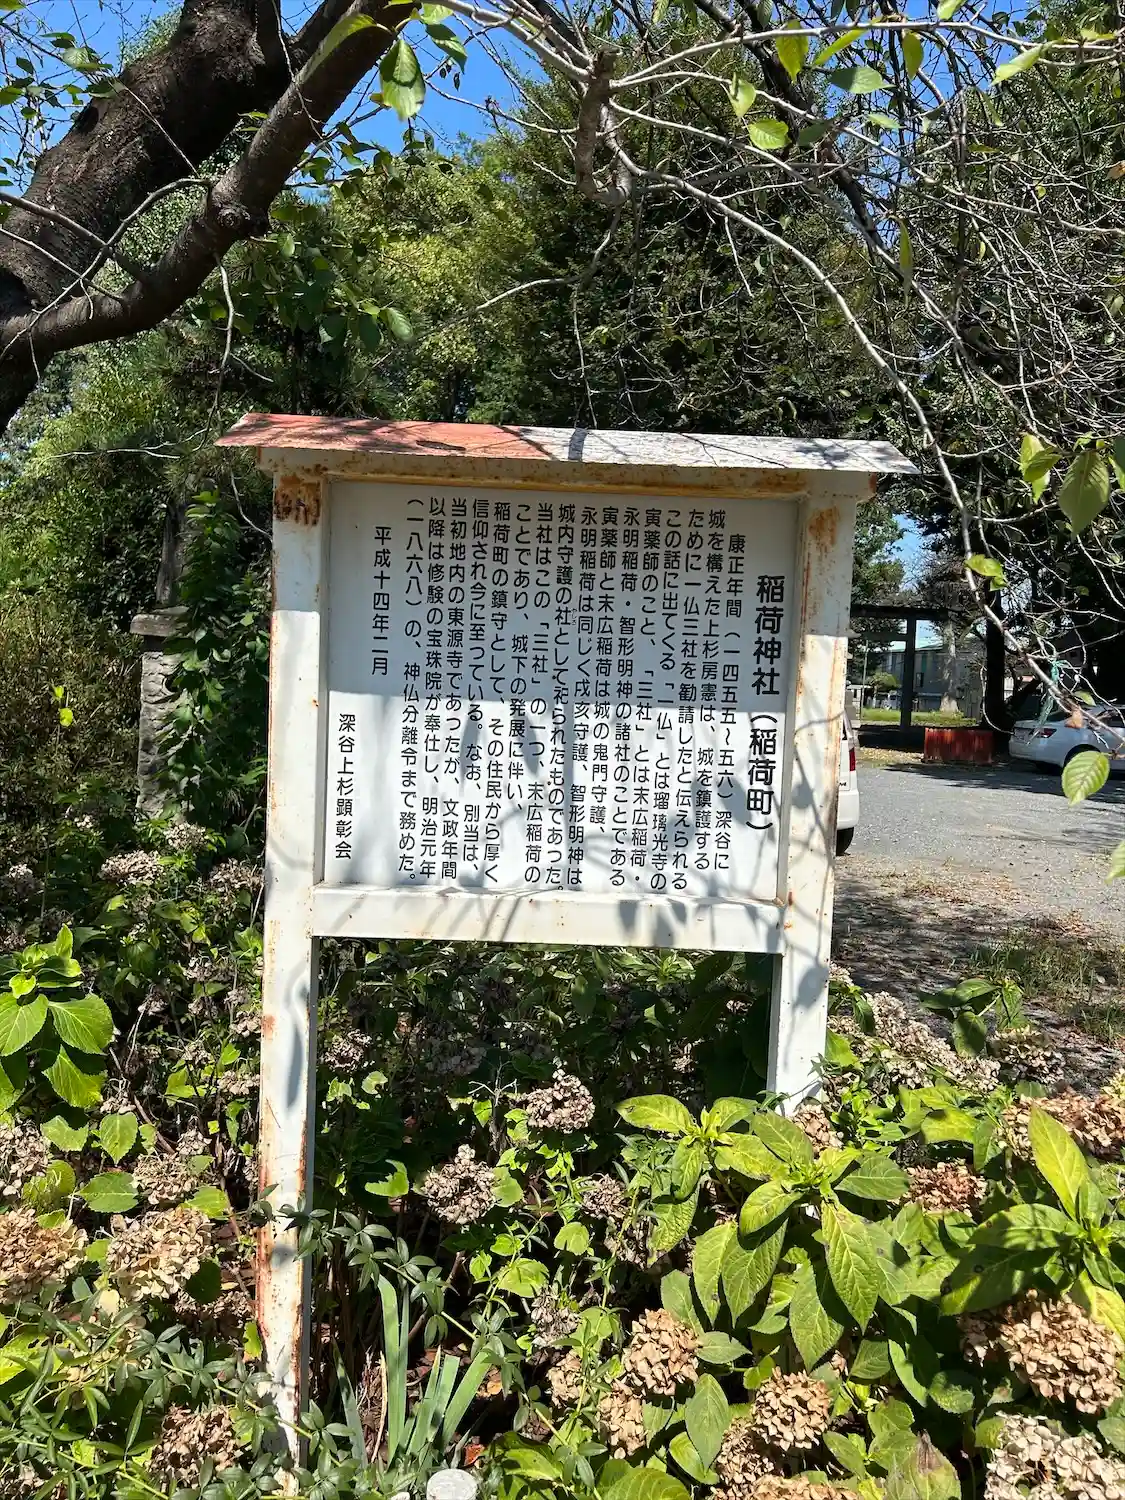 稲荷神社(稲荷町)
康正年間(一四五五〜五六)深谷に
城を構えた上杉房憲は、城を鎮護する
ために一仏三社を勧請したと伝えられる
この話に出てくる「一仏」とは瑠璃光寺の
寅薬師のこと、「三社」とは末広稲荷・
永明稲荷・智形明神の諸社のことである
寅薬師と末広稲荷は城の鬼門守護、
永明稲荷は同じく戌亥守護、智形明神は
城内守護の社として祀られたものであった。
当社はこの「三社」の一つ、末広稲荷の
ことであり、城下の発展に伴い、
稲荷町の鎮守として、その住民から厚く
信仰され今に至っている。なお、別当は、
当初地内の東源寺であったが、文政年間
以降は修験の宝珠院が奉仕し、明治元年
(一八六八)の、神仏分離令まで務めた。
平成十四年二月
深谷上杉顕彰会